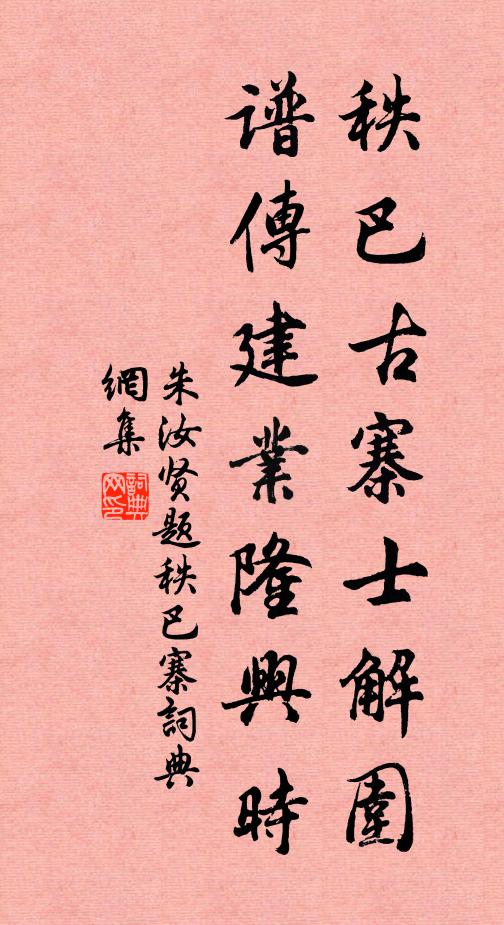 秩巴古寨士解圍
谱傳建業隆興時
朱汝贤题秩巴寨詞典
網集
詞典
网印